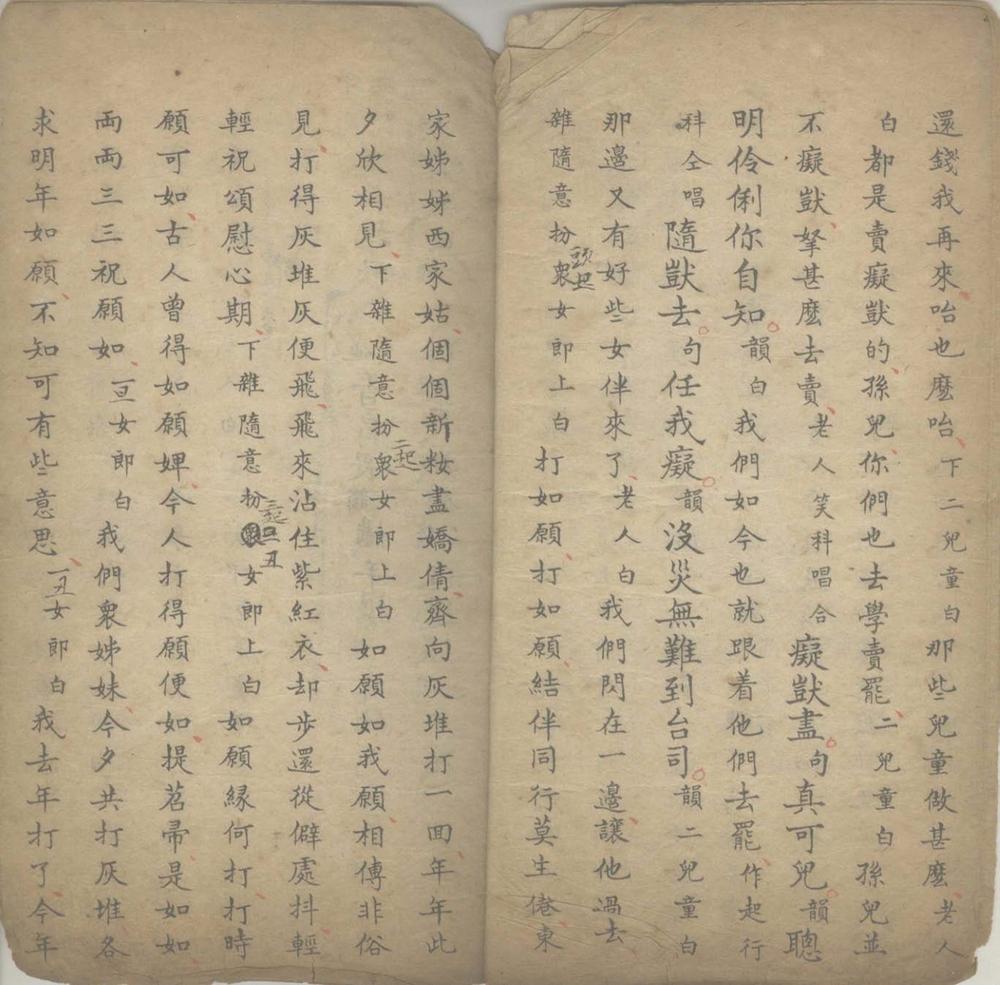 還錢我再來咍也麼咍下二兒童白那些兒童做甚麼老人
白都是賣癡獃的孫兒你們也去學賣罷二兒童白孫兒並
不癡獃拏甚麼去賣老人笑科唱合癡獃盡句真可兒韻聰
明伶俐你自知韻白我們如今也就跟着他們去罷作起行
科仝唱隨獃去句任我癡韻沒災無難到台司韻二兒童白
那邊又有好些女伴來了老人白我們閃在一邊讓他過去
雜隨意扮頭起衆女郎上白打如願打如願結伴同行莫生倦東
家姊姊西家姑個個新粧盡嬌倩齊向灰堆打一回年年此
夕欣相見下雜隨意扮二起衆女郎上白如願如我願相傳非俗
見打得灰堆灰便飛飛來沾住紫紅衣却步還從僻處抖輕
輕祝頌慰心期下雜隨意扮三起旦丑女郎上白如願緣何打打時
願可如古人曾得如願婢今人打得願便如提苕帚是如如
兩兩三三祝願如旦女郎白我們衆姊妹今夕共打灰堆各
求明年如願不知可有些意思一丑女郎白我去年打了今年